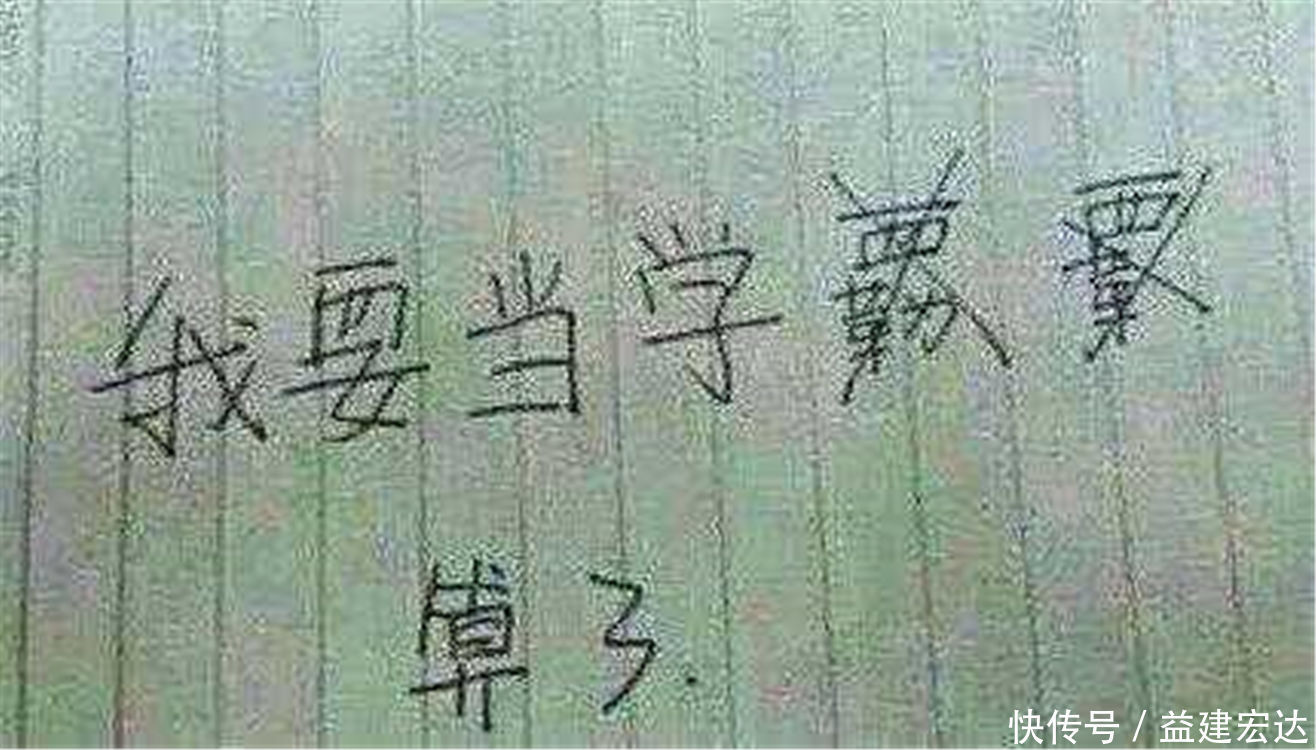 我要当学
算了.
快传号 / 益建宏达